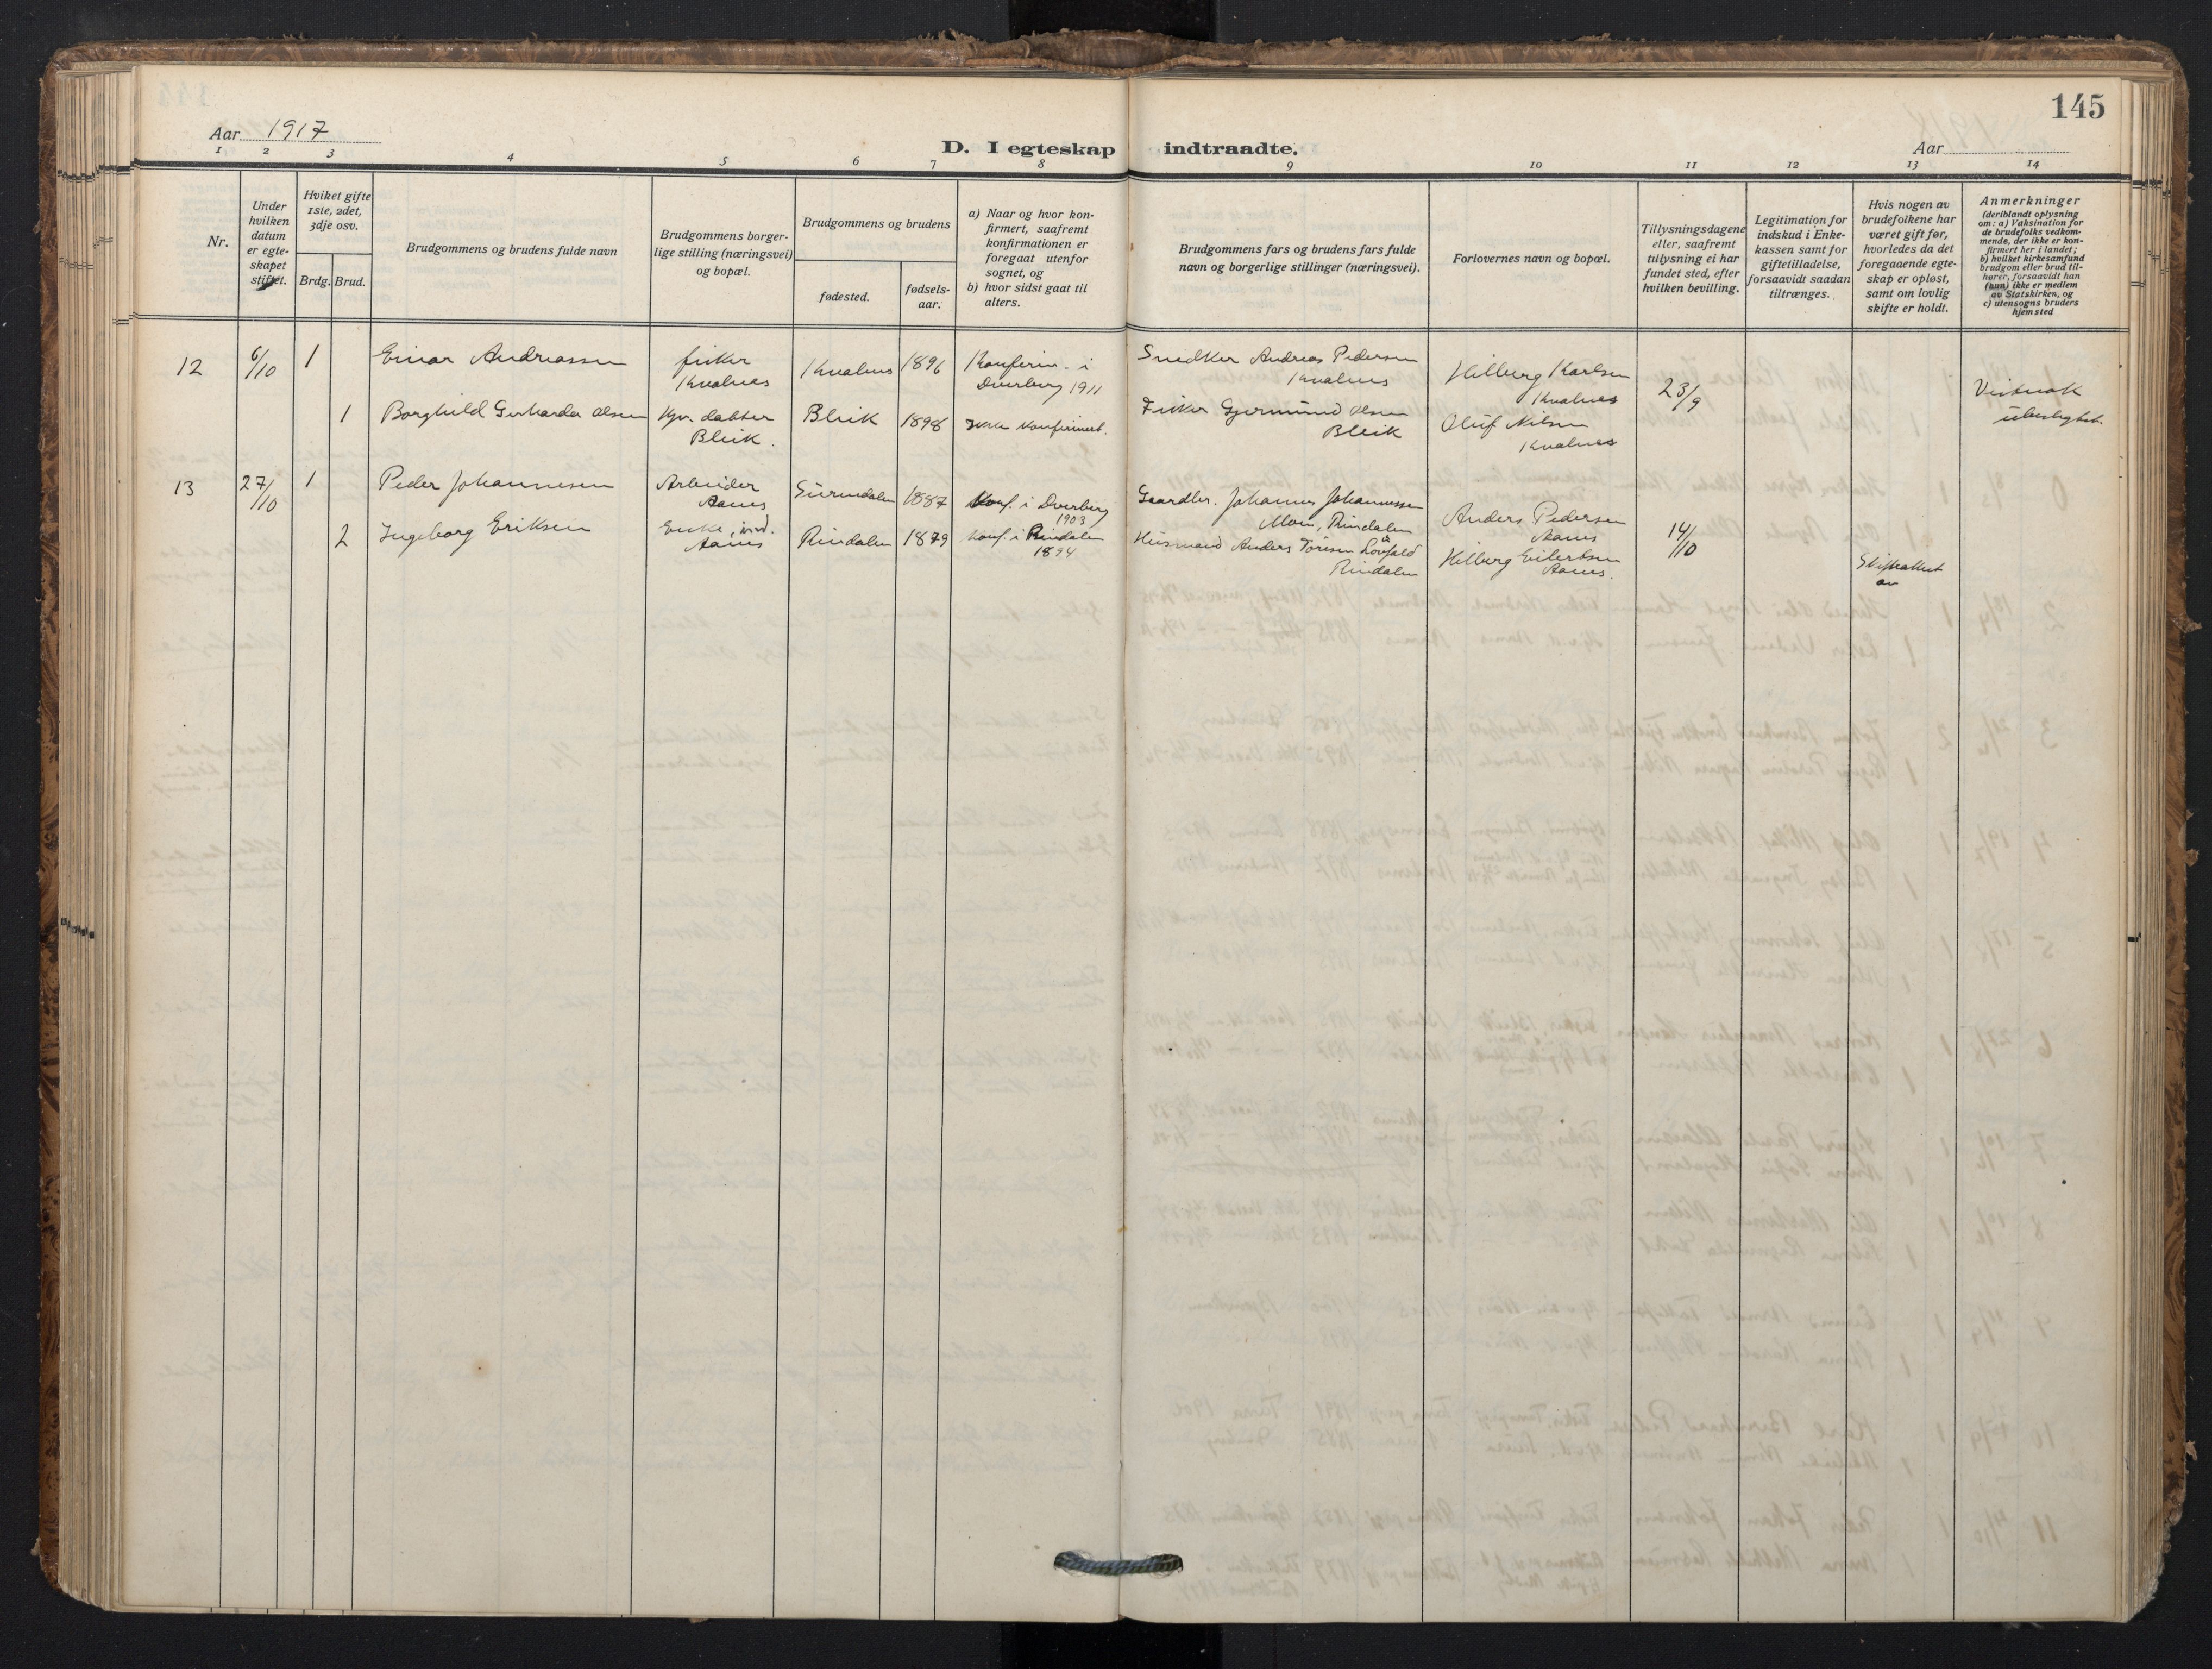 145
Aar 1917
D. I egteskap indtraadte.
Aar
1 2 3 4 5 6 7 8 9 10 11 12 13 14
Nr.
Under hvilken datum er egteskapet stiftet.
Hviket gifte 1ste, 2det, 3dje osv.
Brdg. Brud.
Brudgommens og brudens fulde navn
Brudgommens borgerlige stilling (næringsvei) og bopæl.
Brudgommens og brudens
fødested.
fødselsaar.
a) Naar og hvor konfirmert, saafremt konfirmationen er foregaat utenfor sognet, og
b) hvor sidst gaat til alters.
Brudgommens fars og brudens fars fulde navn og borgerlige stillinger (næringsvei).
Forlovernes navn og bopæl.
Tillysningsdagene eller, saafremt tillysning ei har fundet sted, efter hvilken bevilling.
Legitimation for indskud i Enkekassen samt for giftetilladelse, forsaavidt saadan tiltrænges.
Hvis nogen av brudefolkene har været gift før, hvorledes da det foregaaende egteskap er opløst, samt om lovlig skifte er holdt.
Anmerkninger
(deriblandt oplysning om: a) Vaksination for de brudefolks vedkommende, der ikke er konfirmert her i landet;
b) hvilket kirkesamfund brudgom eller brud tilhører, forsaavidt han (hun) ikke er medlem av Statskirken, og
c) utensogns bruders hjemsted
12 6/10 1 Einar Andreassen fisker Kvalnes Kvalnes 1896 Konfirm. i Dverberg 1911 Snedker Andreas Pedersen Kvalnes Hilberg Karlsen Kvalnes 23/9
1 Borghild Gerharda Olsen Gjv. datter Bleik. Bleik 1898 Ikke konfirmert. Fisker Gjermund Olsen Bleik Oluf Nilsen Kvalnes
13 27/10 1 Peder Johannesen Arbeider Aanes Surendalen 1887 Konf. i Dverberg 1903 Gaardbr. Johannes Johannessen Moen, Rindalen Anders Pedersen Aanes 14/10
2 Ingeborg Eriksen Enke, ind. Aanes Rindalen 1879 Konf. i Rindalen 1894 Husmand Anders Toresen Rindalen Hilberg Eilertsen Aanes.